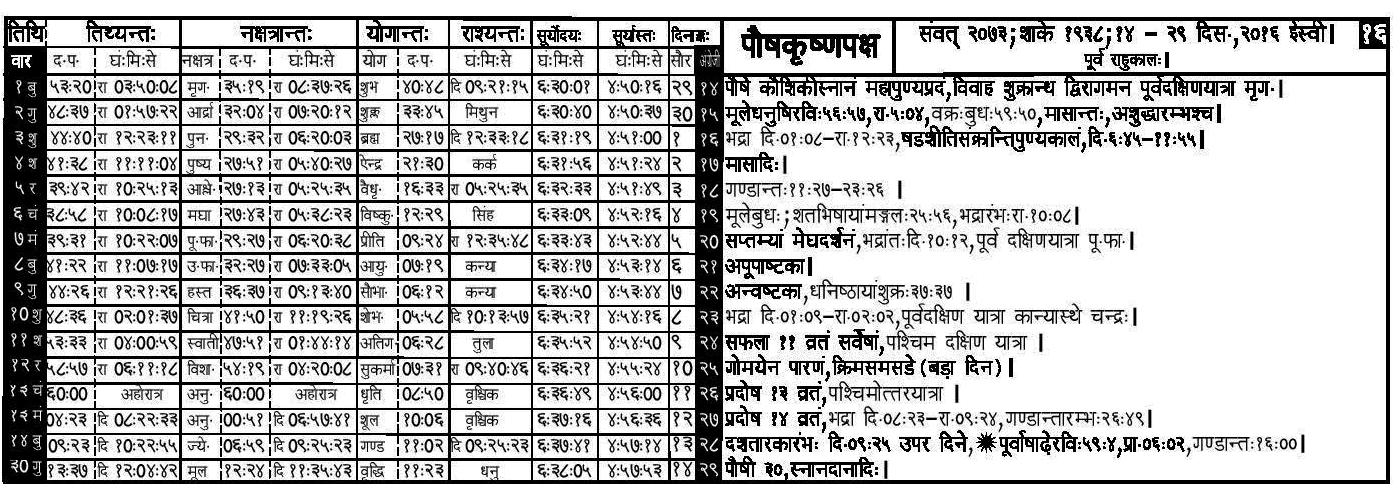 तिथि तिथ्यन्तः नक्षत्रान्तः योगान्तः राश्यन्तः सूर्योदयः सूर्यास्तः दिनाङ्कः पौषकृष्णपक्ष संवत् २०७३;शाके १९३८;१४ - २९ दिस॰,२०१६ ईस्वी। १६
वार द॰प॰ घंःमिःसे नक्षत्र द॰प॰ घंःमिःसे योग द॰प॰ घंःमिःसे घंःमिःसे घंःमिःसे सौर अंग्रेजी पूर्व राहुकालः।
१ बु ५३:२० रा ०३:५०:०८ मृग॰ ३५:१९ रा ०८:३७:२६ शुभ ४०:४८ दि ०९:२१:१५ ६:३०:०१ ४:५०:१६ २९ १४ पौषे कौशिकीस्नानं महापुण्यप्रदं,विवाह शुक्रान्ध द्विरागमन पूर्वदक्षिणयात्रा मृग॰।
२ गु ४८:३७ रा ०१:५७:२२ आर्द्रा ३२:०४ रा ०७:२०:१२ शुक्ल ३३:४५ मिथुन ६:३०:४० ४:५०:३७ ३० १५ मूलेधनुषिरविः५६:५७,रा॰५:०४,वक्रःबुधः५९:५०,मासान्तः,अशुद्धारम्भश्च।
३ शु ४४:४० रा १२:२३:११ पुन॰ २९:३२ रा ०६:२०:०३ ब्रह्म २७:१७ दि १२:३३:१८ ६:३१:१९ ४:५१:०० १ १६ भद्रा दि॰०१:०८-रा॰१२:२३,षडशीतिसंक्रान्तिपुण्यकालं,दि॰६:४५-११:५५।
४ श ४१:३८ रा ११:११:०४ पुष्य २७:५१ रा ०५:४०:२७ ऐन्द्र २१:३० कर्क ६:३१:५६ ४:५१:२४ २ १७ मासादिः।
५ र ३९:४२ रा १०:२५:१३ आश्ले॰ २७:१३ रा ०५:२५:३५ वैधृ॰ १६:३३ रा ०५:२५:३५ ६:३२:३३ ४:५१:४९ ३ १८ गण्डान्तः११:२७-२३:२६ ।
६ चं ३८:५८ रा १०:०८:१७ मघा २७:४३ रा ०५:३८:२३ विष्कु॰ १२:२९ सिंह ६:३३:०९ ४:५२:१६ ४ १९ मूलेबुधः;शतभिषायांमङ्गलः२५:५६,भद्रारंभःरा॰१०:०८।
७ मं ३९:३१ रा १०:२२:०७ पू॰फा॰ २९:२७ रा ०६:२०:३८ प्रीति ०९:२४ रा १२:३५:४८ ६:३३:४३ ४:५२:४४ ५ २० सप्तम्यां मेघदर्शनं,भद्रांतःदि॰१०:१२,पूर्व दक्षिणयात्रा पू॰फा॰।
८ बु ४१:२२ रा ११:०७:१७ उ॰फा॰ ३२:२७ रा ०७:३३:०५ आयु॰ ०७:१९ कन्या ६:३४:१७ ४:५३:१४ ६ २१ अपूपाष्टका।
९ गु ४४:२६ रा १२:२१:२६ हस्त ३६:३७ रा ०९:१३:४० सौभा॰ ०६:१२ कन्या ६:३४:५० ४:५३:४४ ७ २२ अन्वष्टका,धनिष्ठायांशुक्रः३७:३७ ।
१० शु ४८:३६ रा ०२:०१:३७ चित्रा ४१:५० रा ११:१९:२६ शोभ॰ ०५:५८ दि १०:१३:५७ ६:३५:२१ ४:५४:१६ ८ २३ भद्रा दि॰०१:०९-रा॰०२:०२,पूर्वदक्षिण यात्रा कान्यास्थे चन्द्रः।
११ श ५३:३३ रा ०४:००:५९ स्वाती ४७:५१ रा ०१:४४:१४ अतिग॰ ०६:२८ तुला ६:३५:५२ ४:५४:५० ९ २४ सफला ११ व्रतं सर्वेषां,पश्चिम दक्षिण यात्रा ।
१२ र ५८:५७ रा ०६:११:१८ विशा॰ ५४:१९ रा ०४:२०:०८ सुकर्मा ०७:३१ रा ०९:४०:४६ ६:३६:२१ ४:५५:२४ १० २५ गोमयेन पारणं,क्रिमसमसडे (बड़ा दिन)।
१३ चं ६०:०० अहोरात्र अनु॰ ६०:०० अहोरात्र धृति ०८:५० वृश्चिक ६:३६:४९ ४:५६:०० ११ २६ प्रदोष १३ व्रतं,पश्चिमोत्तरयात्रा ।
१३ मं ०४:२३ दि ०८:२२:३३ अनु॰ ००:५१ दि ०६:५७:४१ शूल १०:०६ वृश्चिक ६:३७:१६ ४:५६:३६ १२ २७ प्रदोष १४ व्रतं,भद्रा दि॰०८:२३-रा॰०९:२४,गण्डान्तारम्भः२६:४९।
१४ बु ०९:२३ दि १०:२२:५५ ज्ये॰ ०६:५९ दि ०९:२५:२३ गण्ड ११:०२ दि ०९:२५:२३ ६:३७:४१ ४:५७:१४ १३ २८ दशतारकारंभः दि॰०९:२५ उपर दिने,✹पूर्वाषाढ़ेरविः५९:४,प्रा॰०६:०२,गण्डान्तः१६:००।
३० गु १३:३७ दि १२:०४:४२ मूल १२:२४ दि ११:३५:४३ वृद्धि ११:२३ धनु ६:३८:०५ ४:५७:५३ १४ २९ पौषी ३०,स्नानदानादिः।